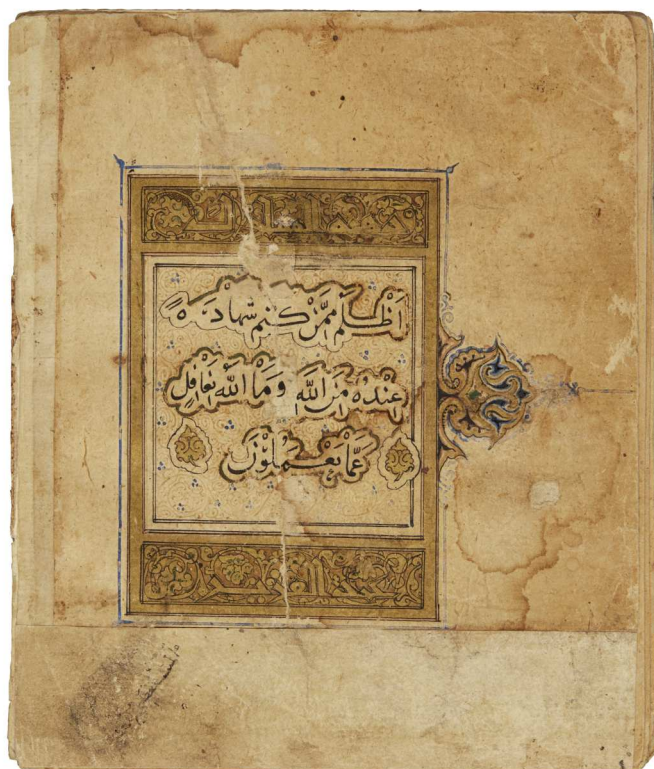 أَظْلَمُ مِمَّنْ كَتَمَ شَهَادَةً
عِنْدَهُ مِنَ اللَّهِ وَمَا اللَّهُ بِغَافِلٍ
عَمَّا تَعْمَلُونَ